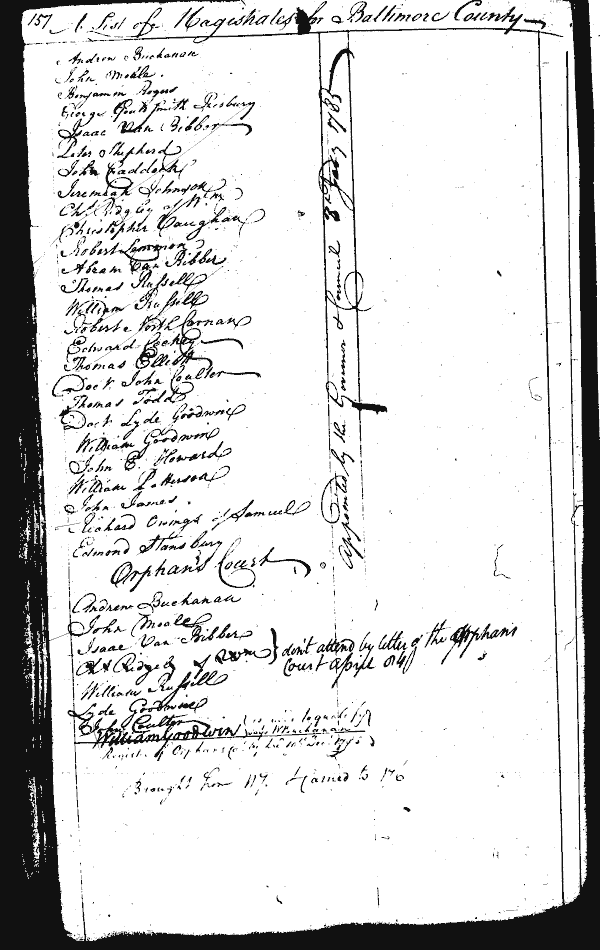 157 A List of Magistrates for Baltimore County
Andrew Buchanan
John Moale.
Benjamin Rogers
George Smith Presbury
Isaac Van Bibber
Peter Shepherd
John Craddock
Jeremiah Johnson
Chs. Ridgley of Wm
Christopher Vaughan
Robert Lemmon
Abram Van Bibber
Thomas Russell
William Russell
Robert North Carnan
Edward Cockey
Thomas Elliott
Doct. John Coulter
Thomas Todd
Doct. Lyde Goodwin
William Goodwin
John E. Howard
William Patterson
John James.
Richard Owings of Samuel
Edmond Stansbury
Appointed by the Governor & Council 1785
Orphans Court
Andrew Buchanan
John Moale
Isaac Van Bibber
Chs Ridgely of Wm } don't attend by letter of the Orphans
Court April
William Russell
Lyde Goodwin
John Coulter
William Goodwin
Register of Orphans
Brought from 117. Carried to 176